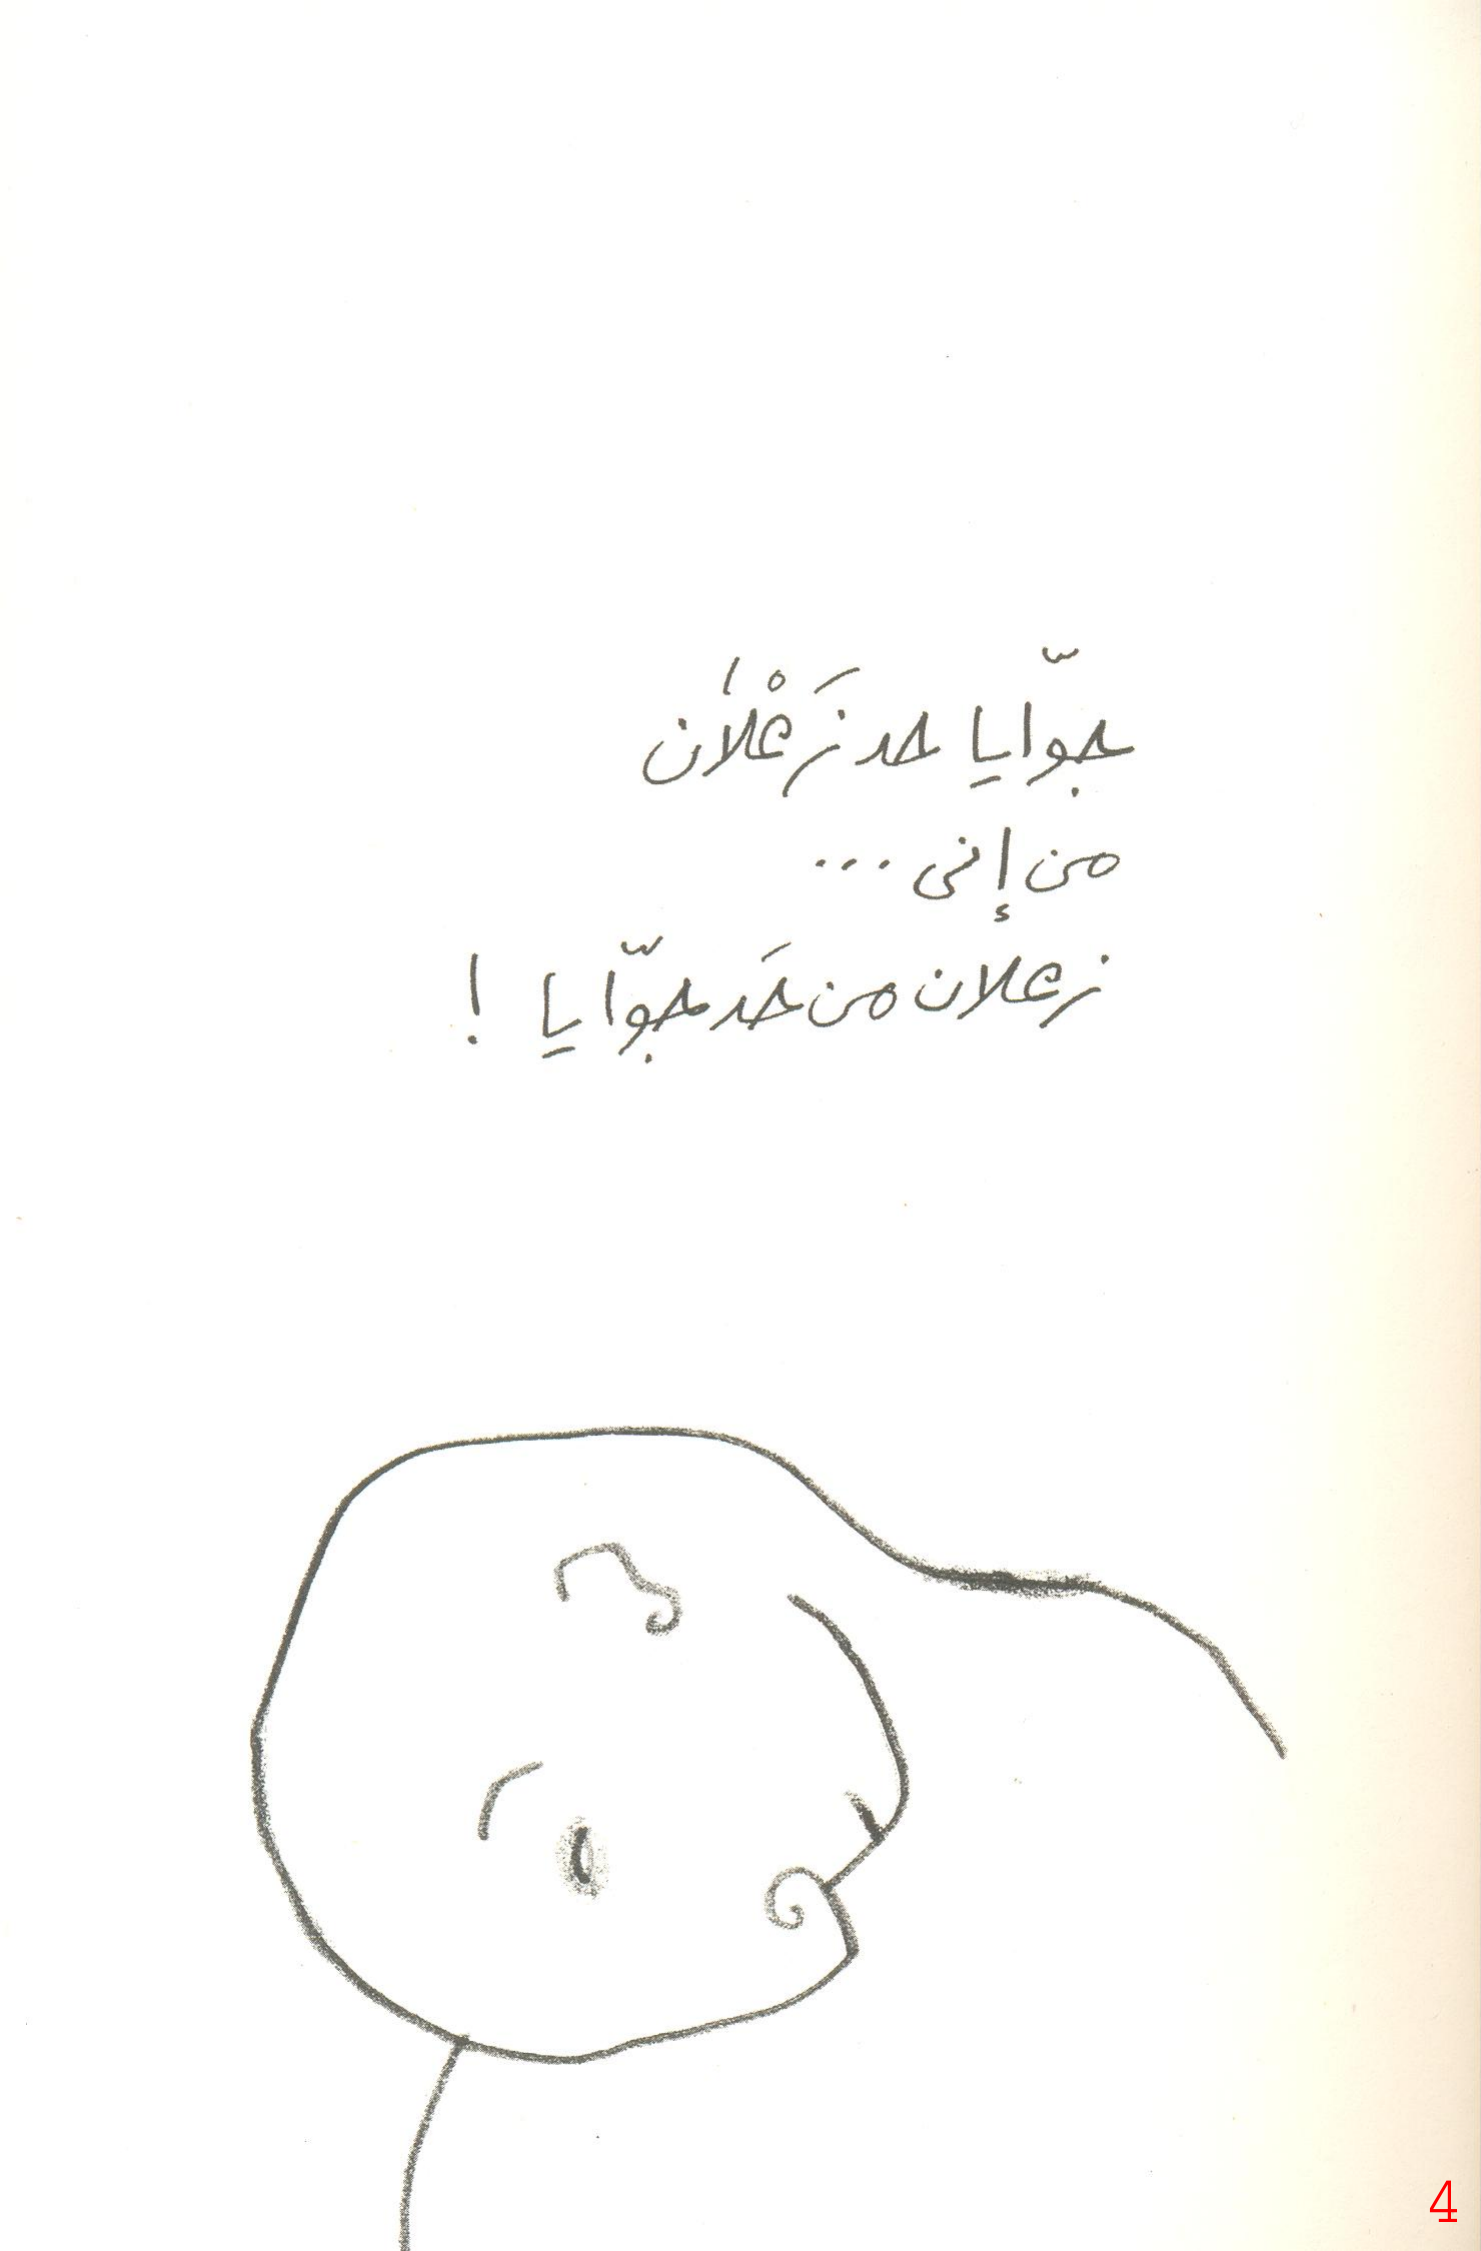 جوّايا حد زَعْلَان
من إنى ...
زعلان من حَد جوّايا !
4